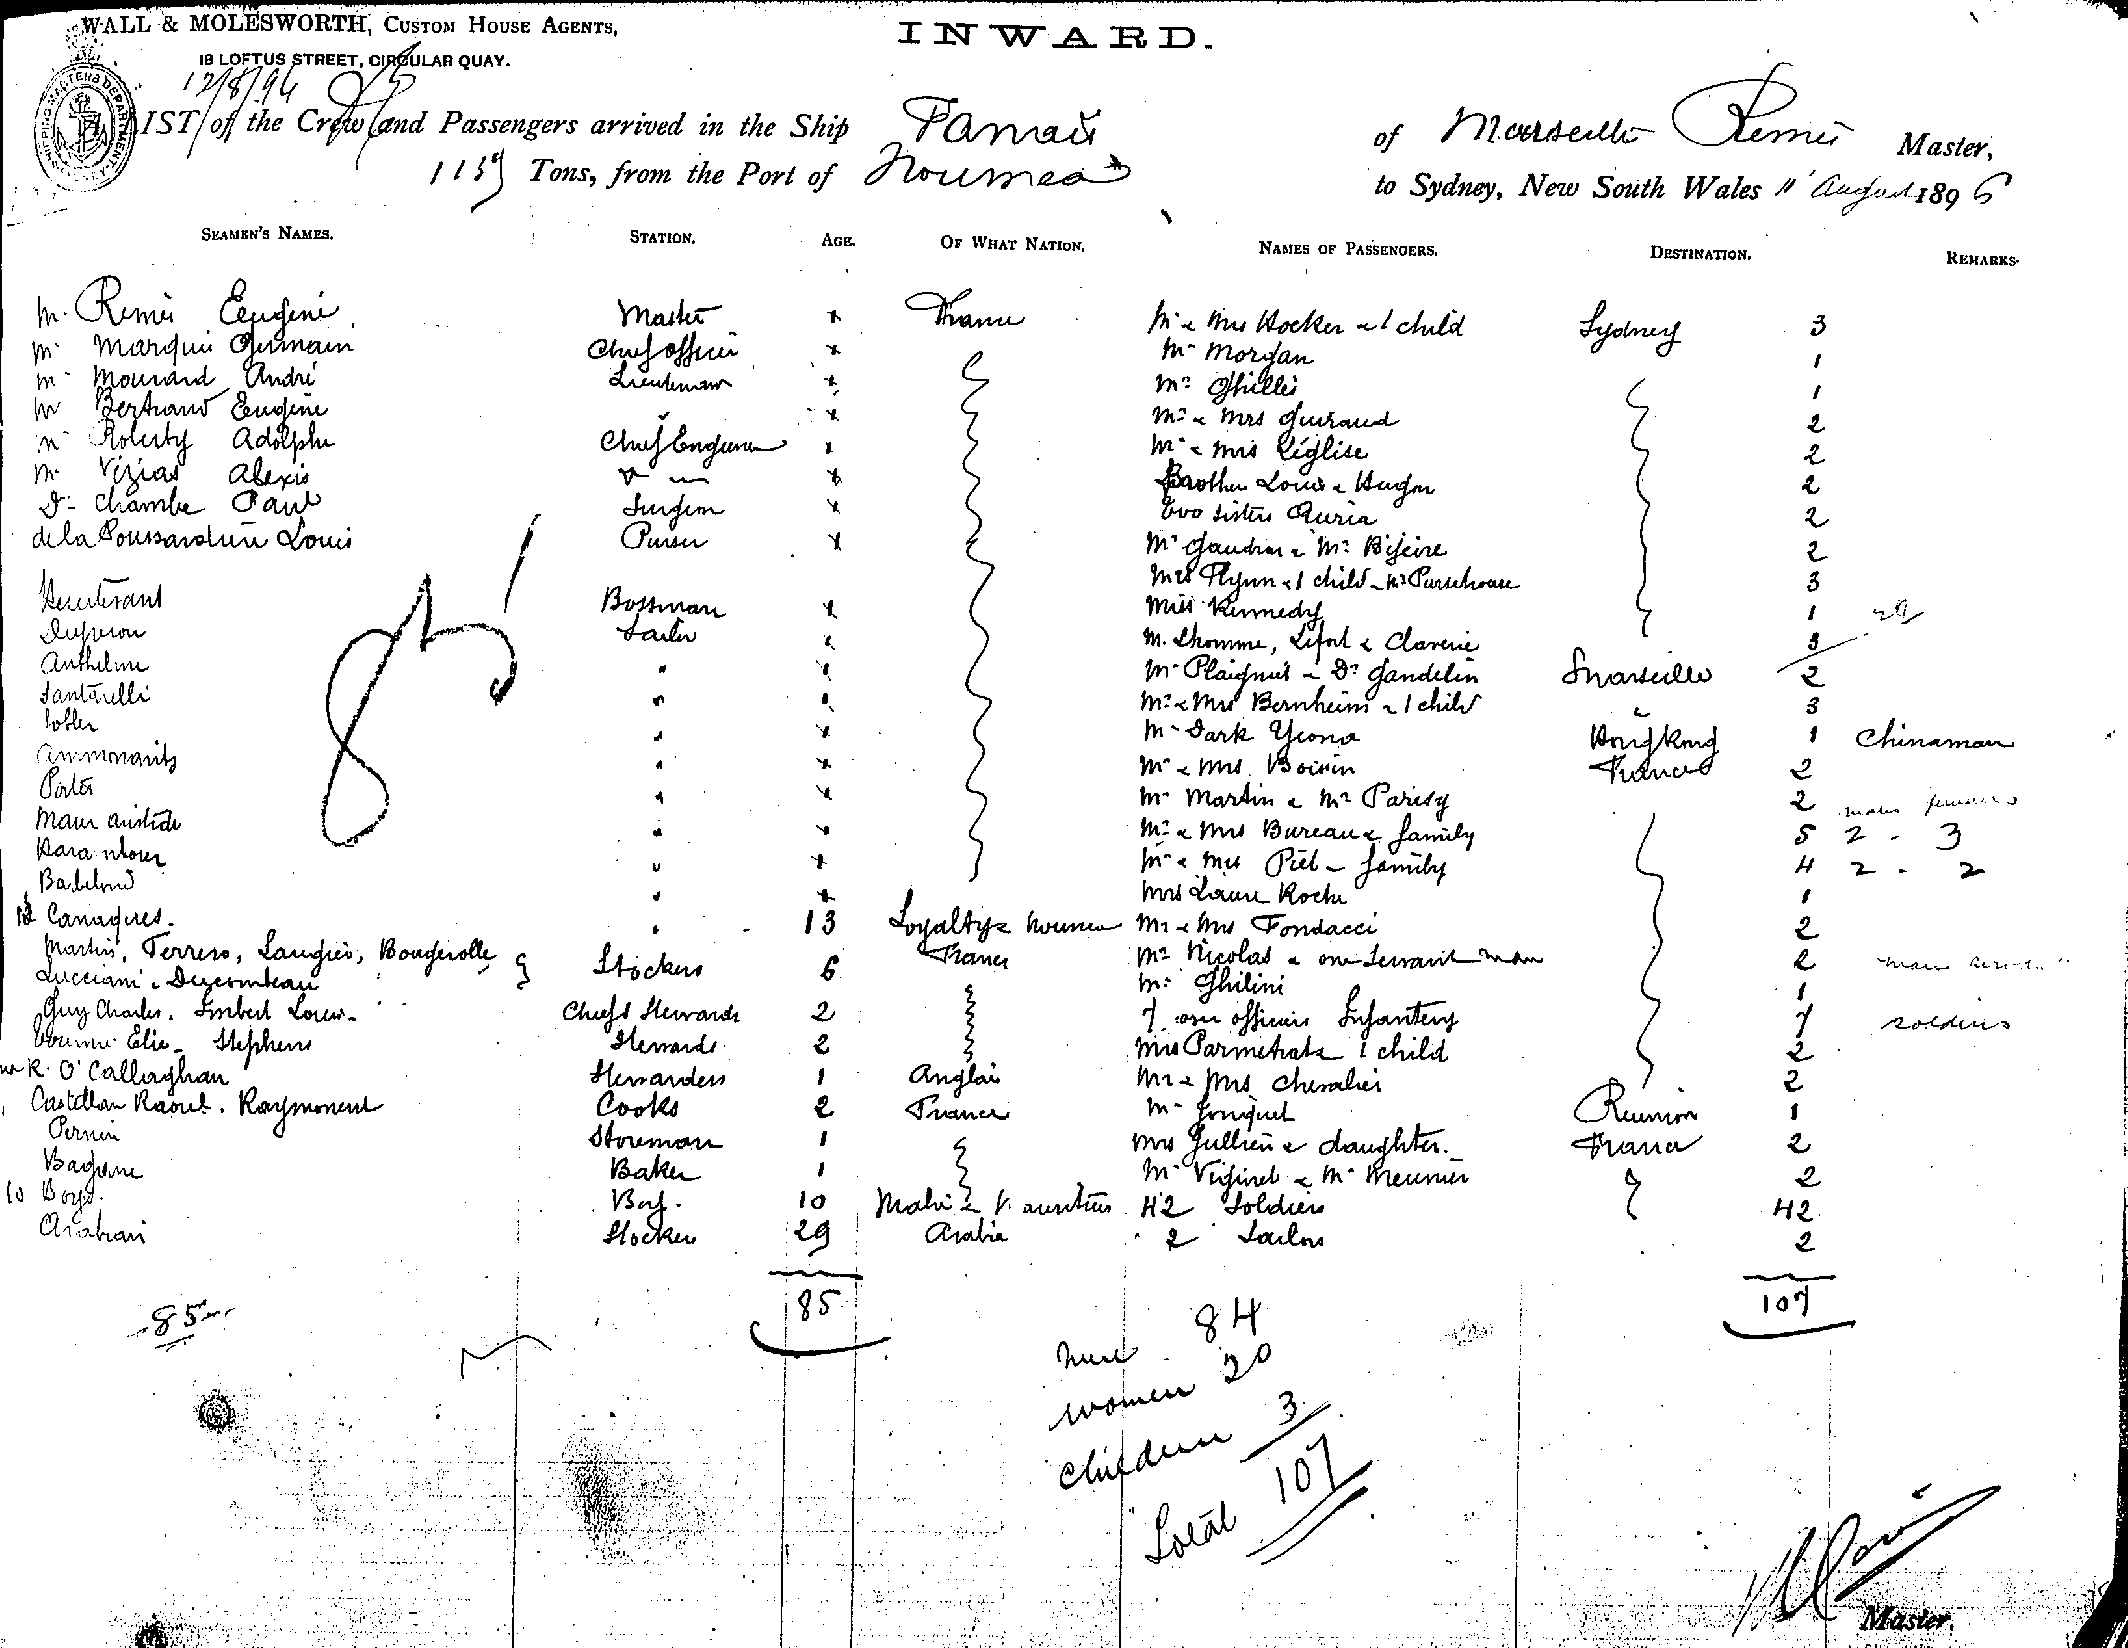 WALL & MOLESWORTH, CUSTOM HOUSE AGENTS,
18 LOFTUS STREET, CIRCULAR QUAY.
INWARD.
12/8/96
LIST of the Crew and Passengers arrived in the Ship Tanais of Marseille Remès Master,
1159 Tons, from the Port of Noumea to Sydney, New South Wales 11 August 1896
SEAMEN'S NAMES. STATION. AGE. OF WHAT NATION. NAMES OF PASSENGERS. DESTINATION. REMARKS.
M. Remès Eugène Master x France Mr & Mrs Hocker & 1 child Sydney 3
Mr Marquis Germain Chief officer x Mr Morgan 1
Mr Mourard André Lieutenant x Mr Ghillis 1
Mr Bertrand Eugène x Mr & Mrs Guiraud 2
Mr Roberty Adolphe Chief Engineer x Mr & Mrs Léglise 2
Mr Vizias Alexis x Brother Louis & Hugon 2
Dr Chambe Paul Surgeon x Two sisters Auria 2
de la Poussardiere Louis Purser x Mr Gaudin & Mr Bizeire 2
Mrs Flynn & 1 child Mr Pursehouse 3
Bossman x Miss Kennedy 1
Dupron Sailor x M. Lhomme, Lefort & Claverie 3
Anthelme " x Mr Plaignet & Dr Gandelin Marseille 2
Santarelli " Mr & Mrs Bernheim & 1 child 3
" x Mr Dark Yeona Hong Kong 1 Chinaman
" x Mr & Mrs Boisin France 2
Porter " x Mr Martin & Mr Parisy 2 males females
Maur aristide " x Mr & Mrs Bureau & family 5 2 - 3
" x Mr & Mrs Piel & family 4 2 - 2
Babelond " x Mrs Laure Roche 1
Canaques. " 13 Loyalty & Noumea Mr & Mrs Fondacci 2
Martin, Terrero, Laugier, Bougerolle Stockers 6 France Mr Nicolas & one Servant man 2
Lucciani & Decombeau Mr Ghilini 1
Guy Charles. Imbert Louis Chiefs Stewards 2 7 officers Infantery 7 soldiers
Elie Stephens Stewards 2 Mrs Parmetrat & 1 child 2
R. O'Callaghan Stewardess 1 Anglais Mr & Mrs Chevalier 2
Castellan Raoul. Raymonent Cooks 2 France Mr Jonquet Reunion 1
Pernin Storeman 1 Mrs Jullien & daughter. France 2
Bagarre Baker 1 Mr Viginel & Mr Meunier 2
10 Boys. Boy. 10 42 Soldiers 42
Arabian Stocker 29 Arabia 2 Sailors 2
85 85 107
85
men 84
women 20
children 3
Total 107
Master.